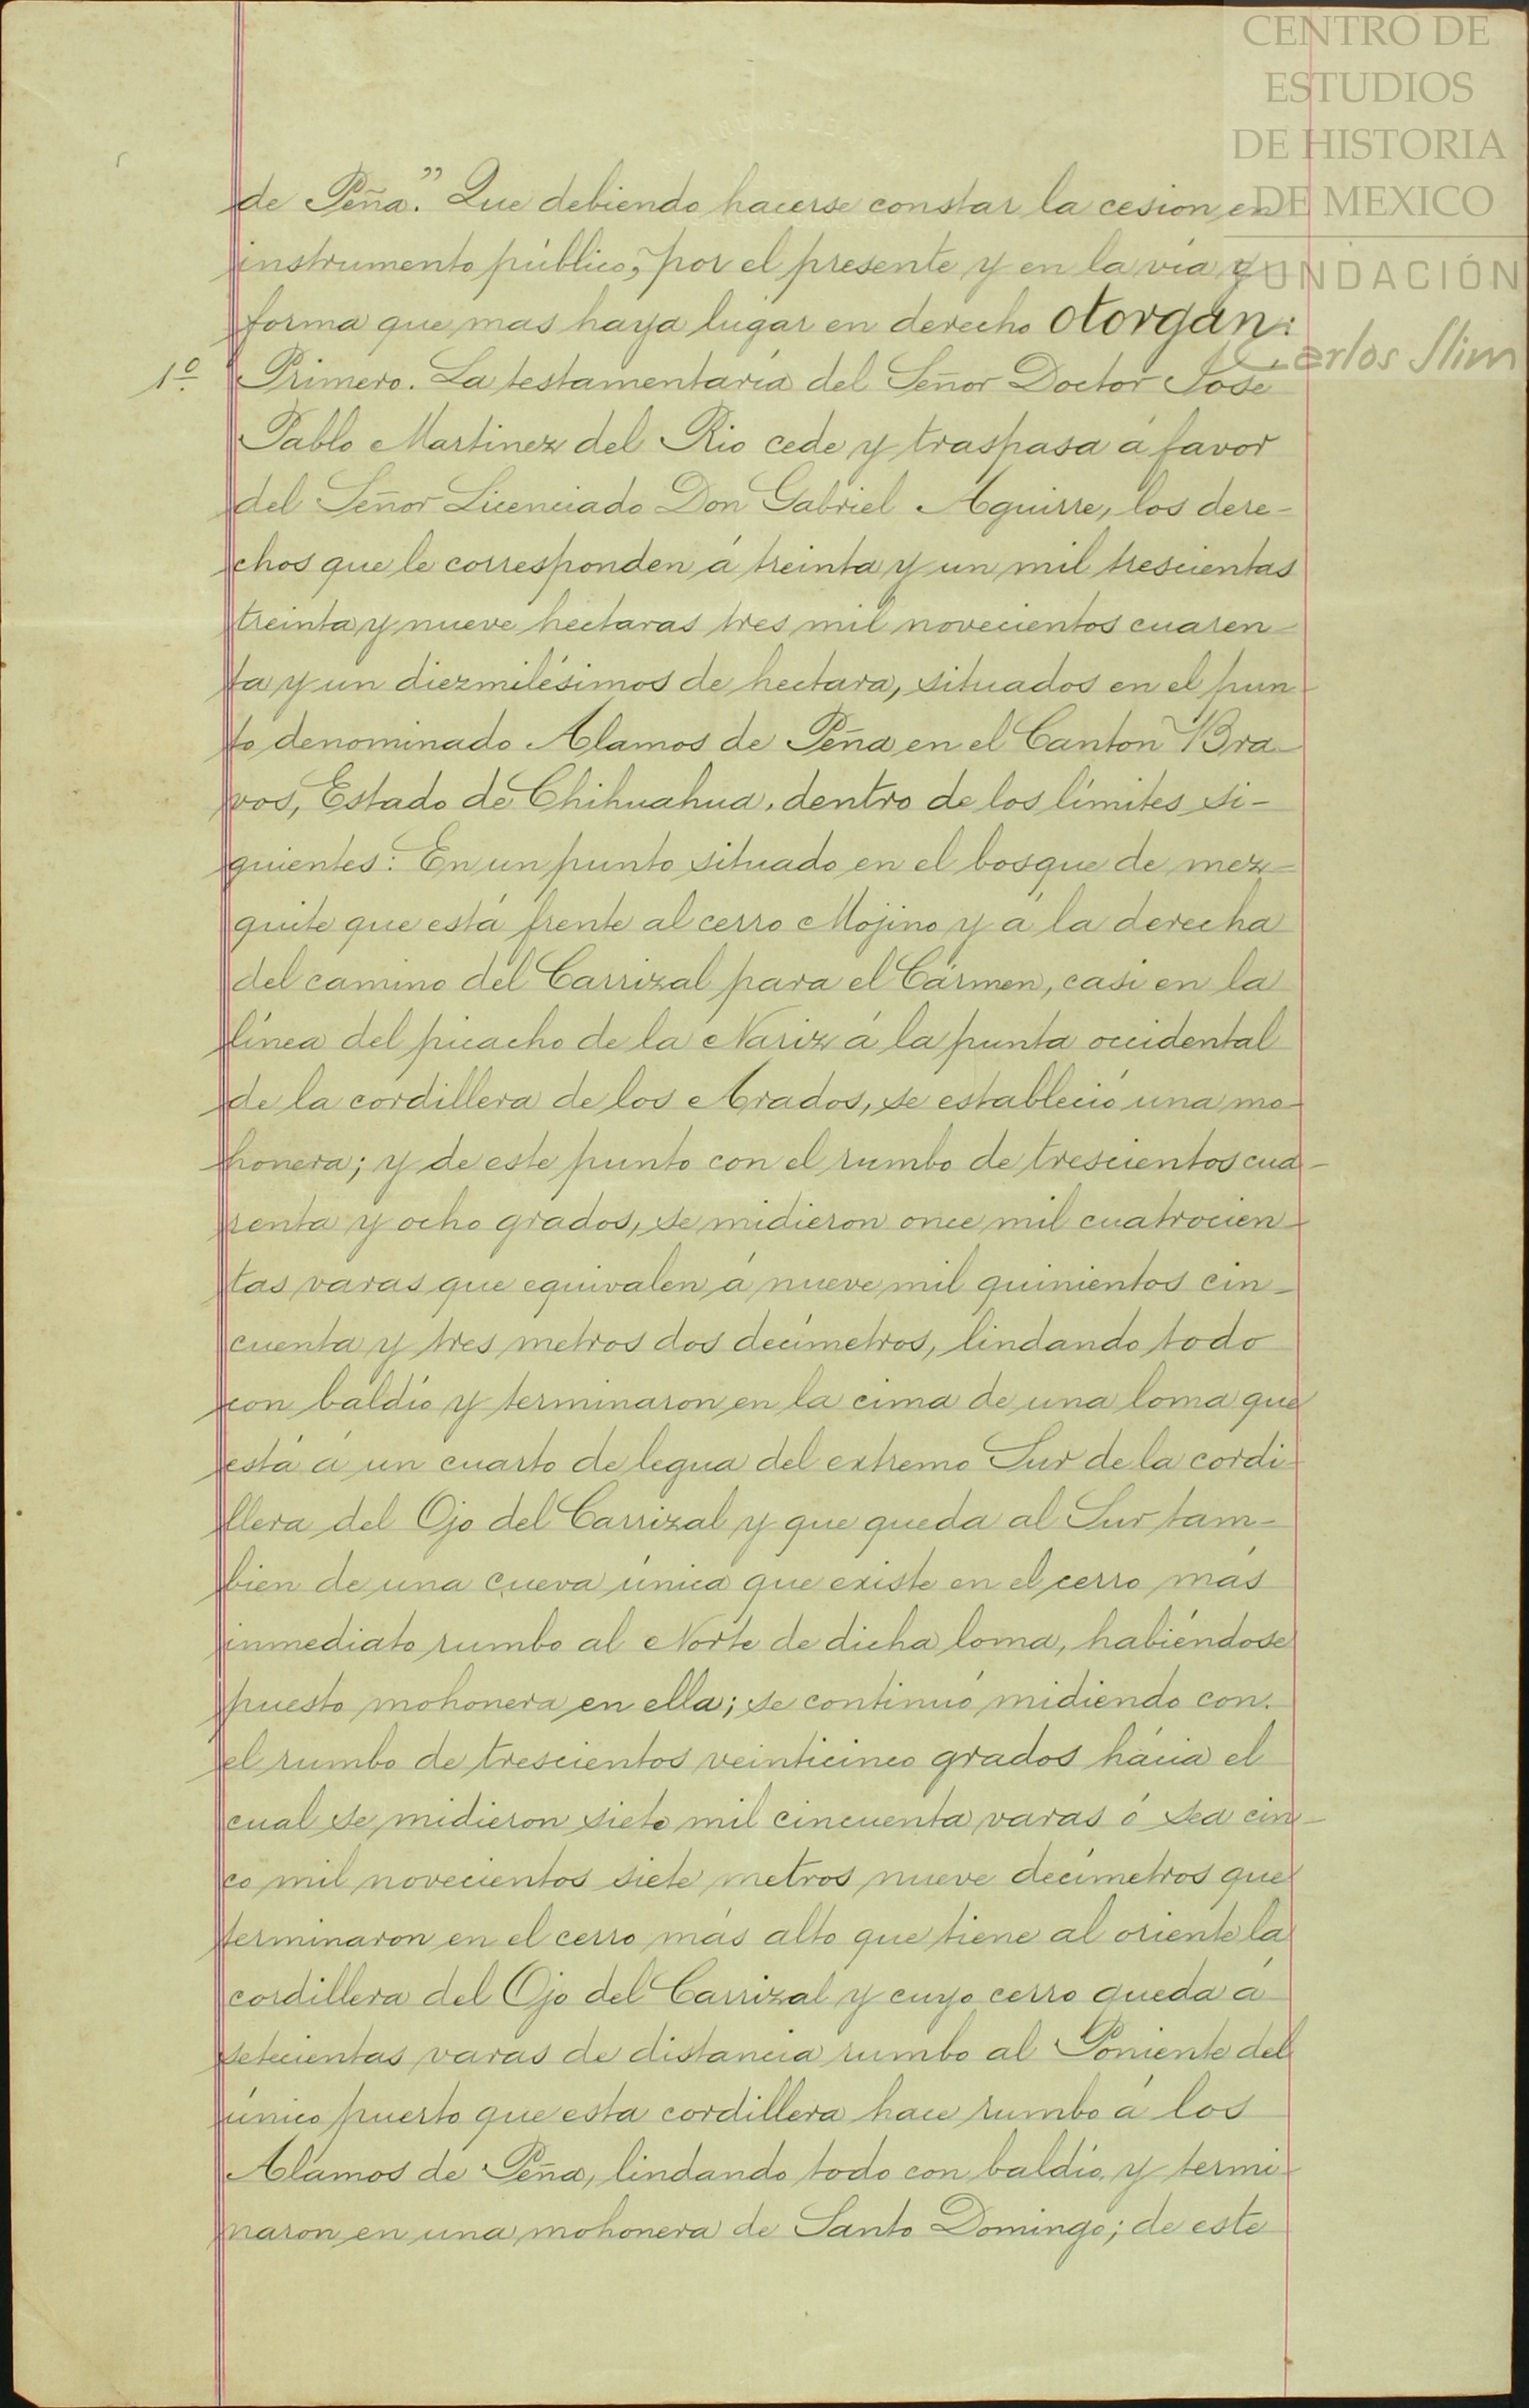 CENTRO DE
ESTUDIOS
DE HISTORIA
DE MEXICO
FUNDACIÓN
Carlos Slim
de Peña.” Que debiendo hacerse constar la cesion en
instrumento público, por el presente y en la via y
forma que mas haya lugar en derecho otorgan:
1º Primero. La testamentaría del Señor Doctor José
Pablo Martinez del Rio cede y traspasa á favor
del Señor Licenciado Don Gabriel Aguirre, los dere-
chos que le corresponden á treinta y un mil trescientas
treinta y nueve hectaras tres mil novecientos cuaren-
ta y un diezmilésimos de hectara, situados en el pun-
to denominado Alamos de Peña en el Canton Bra-
vos, Estado de Chihuahua, dentro de los límites si-
guientes: En un punto situado en el bosque de mez-
quite que está frente al cerro Mojino y á la derecha
del camino del Carrizal para el Cármen, casi en la
línea del picacho de la Nariz á la punta occidental
de la cordillera de los Arados, se estableció una mo-
honera; y de este punto con el rumbo de trescientos cua-
renta y ocho grados, se midieron once mil cuatrocien-
tas varas que equivalen á nueve mil quinientos cin-
cuenta y tres metros dos decímetros, lindando todo
con baldío y terminaron en la cima de una loma que
está á un cuarto de legua del extremo Sur de la cordi-
llera del Ojo del Carrizal y que queda al Sur tam-
bien de una cueva única que existe en el cerro más
inmediato rumbo al Norte de dicha loma, habiéndose
puesto mohonera en ella; se continuó midiendo con.
el rumbo de trescientos veinticinco grados hácia el
cual se midieron siete mil cincuenta varas ó sea cin-
co mil novecientos siete metros nueve decímetros que
terminaron en el cerro más alto que tiene al oriente la
cordillera del Ojo del Carrizal y cuyo cerro queda á
setecientas varas de distancia rumbo al Poniente del
único puerto que esta cordillera hace rumbo á los
Alamos de Peña, lindando todo con baldío, y termi-
naron en una mohonera de Santo Domingo; de este